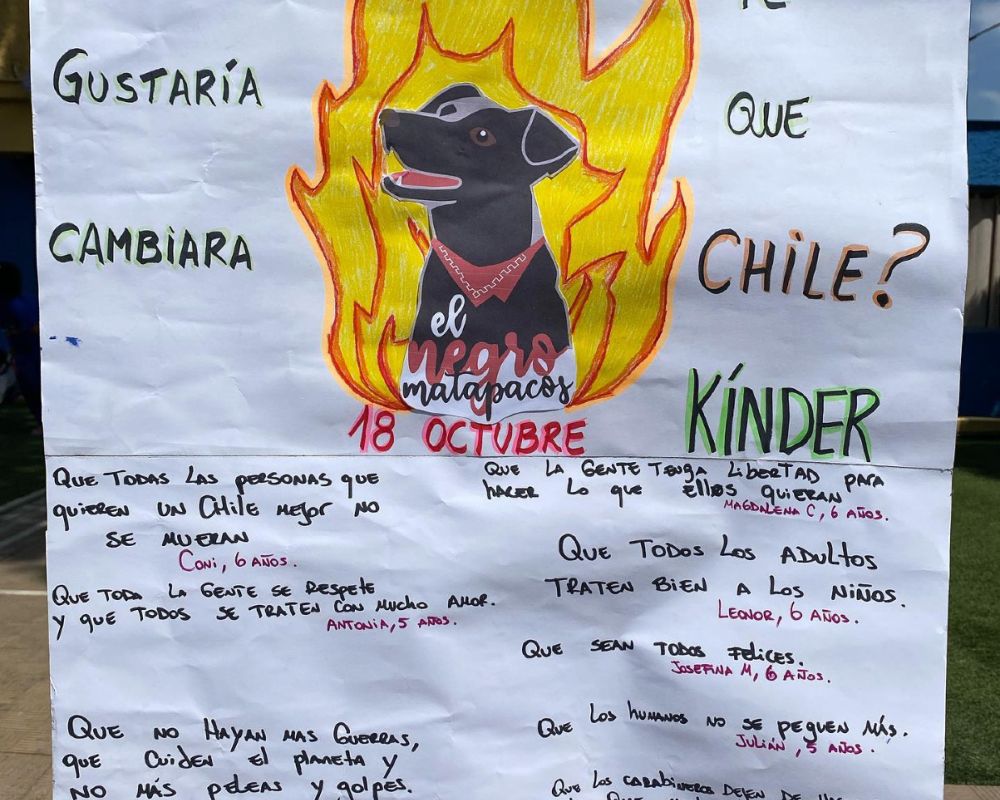 TE
GUSTARÍA
QUE
CAMBIARA
CHILE?
el
negro
matapacos
18 OCTUBRE
KÍNDER
QUE TODAS LAS PERSONAS QUE
QUIEREN UN CHILE MEJOR NO
SE MUERAN
CONI, 6 AÑOS.
QUE TODA LA GENTE SE RESPETE
Y QUE TODOS SE TRATEN CON MUCHO AMOR.
ANTONIA, 5 AÑOS.
QUE NO HAYAN MAS GUERRAS,
QUE CUIDEN EL PLANETA Y
NO MÁS PELEAS Y GOLPES.
QUE LA GENTE TENGA LIBERTAD PARA
HACER LO QUE ELLOS QUIERAN
MAGDALENA C, 6 AÑOS.
QUE TODOS LOS ADULTOS
TRATEN BIEN A LOS NIÑOS.
LEONOR, 6 AÑOS.
QUE SEAN TODOS FELICES.
JOSEFINA M, 6 AÑOS.
QUE LOS HUMANOS NO SE PEGUEN MÁS.
JULIÁN, 5 AÑOS.
QUE LOS CARABINEROS DEJEN DE